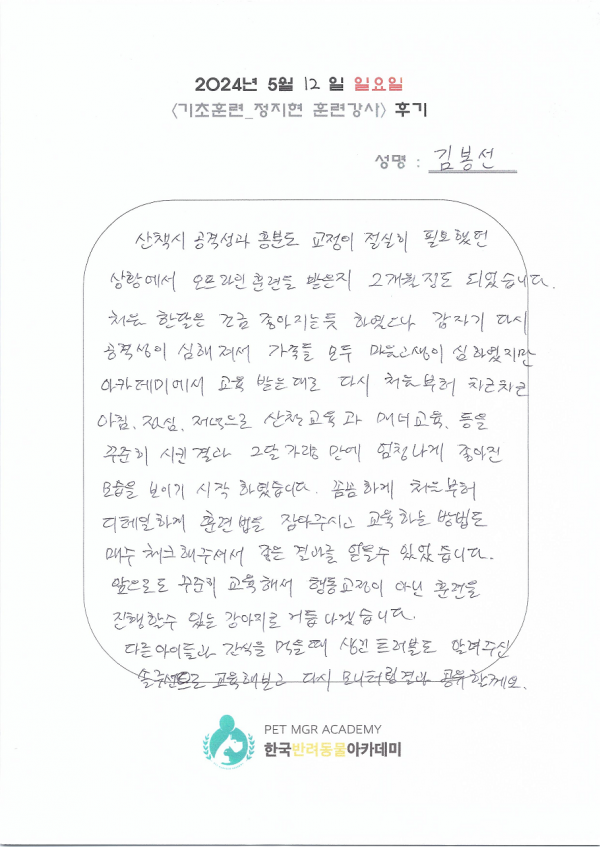 2024년 5월 12일 일요일
<기초훈련_정지현 훈련강사> 후기
성명 : 김봉선
산책시 공격성과 흥분도 교정이 절실히 필요했던
상황에서 오프라인 훈련을 받은지 2개월 정도 되었습니다.
처음 한달은 조금 좋아지는듯 하였으나 갑자기 다시
공격성이 심해져서 가족들 모두 마음고생이 심하였지만
아카데미에서 교육 받은대로 다시 처음부터 차근차근
아침, 점심, 저녁으로 산책교육과 매너교육, 등을
꾸준히 시킨결과 2달가량 만에 엄청나게 좋아진
모습을 보이기 시작 하였습니다. 꼼꼼하게 처음부터
디테일하게 훈련법을 잡아주시고 교육하는 방법도
매주 체크해주셔서 값은 결과를 얻을수 있었습니다.
앞으로도 꾸준히 교육해서 행동교정이 아닌 훈련을
진행할수 있는 강아지로 거듭나겠습니다.
다른아이들과 간식을 먹을때 생긴 트러블도 알려주신
솔루션으로 교육해보고 다시 모니터링결과 공유할게요.
PET MGR ACADEMY
한국반려동물아카데미